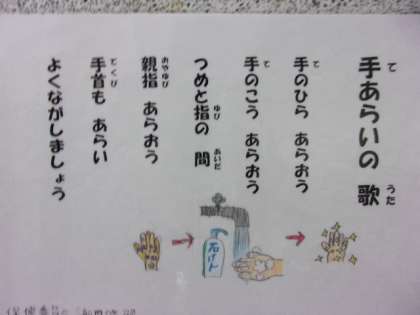 手あらいの 歌
手のひら あらおう
手のこう あらおう
つめと指の 間
親指 あらおう
手首も あらい
よくながしましょう
石けん